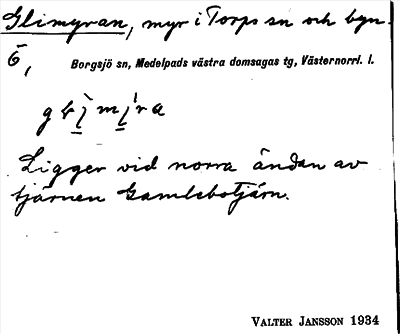 Glimyran, myr i Torps sn och byn.
6,
Borgsjö sn, Medelpads västra domsagas tg, Västernorrl. l.
Ligger vid norra ändan av
tjärnen Gamlebotjärn.
VALTER JANSSON 1934